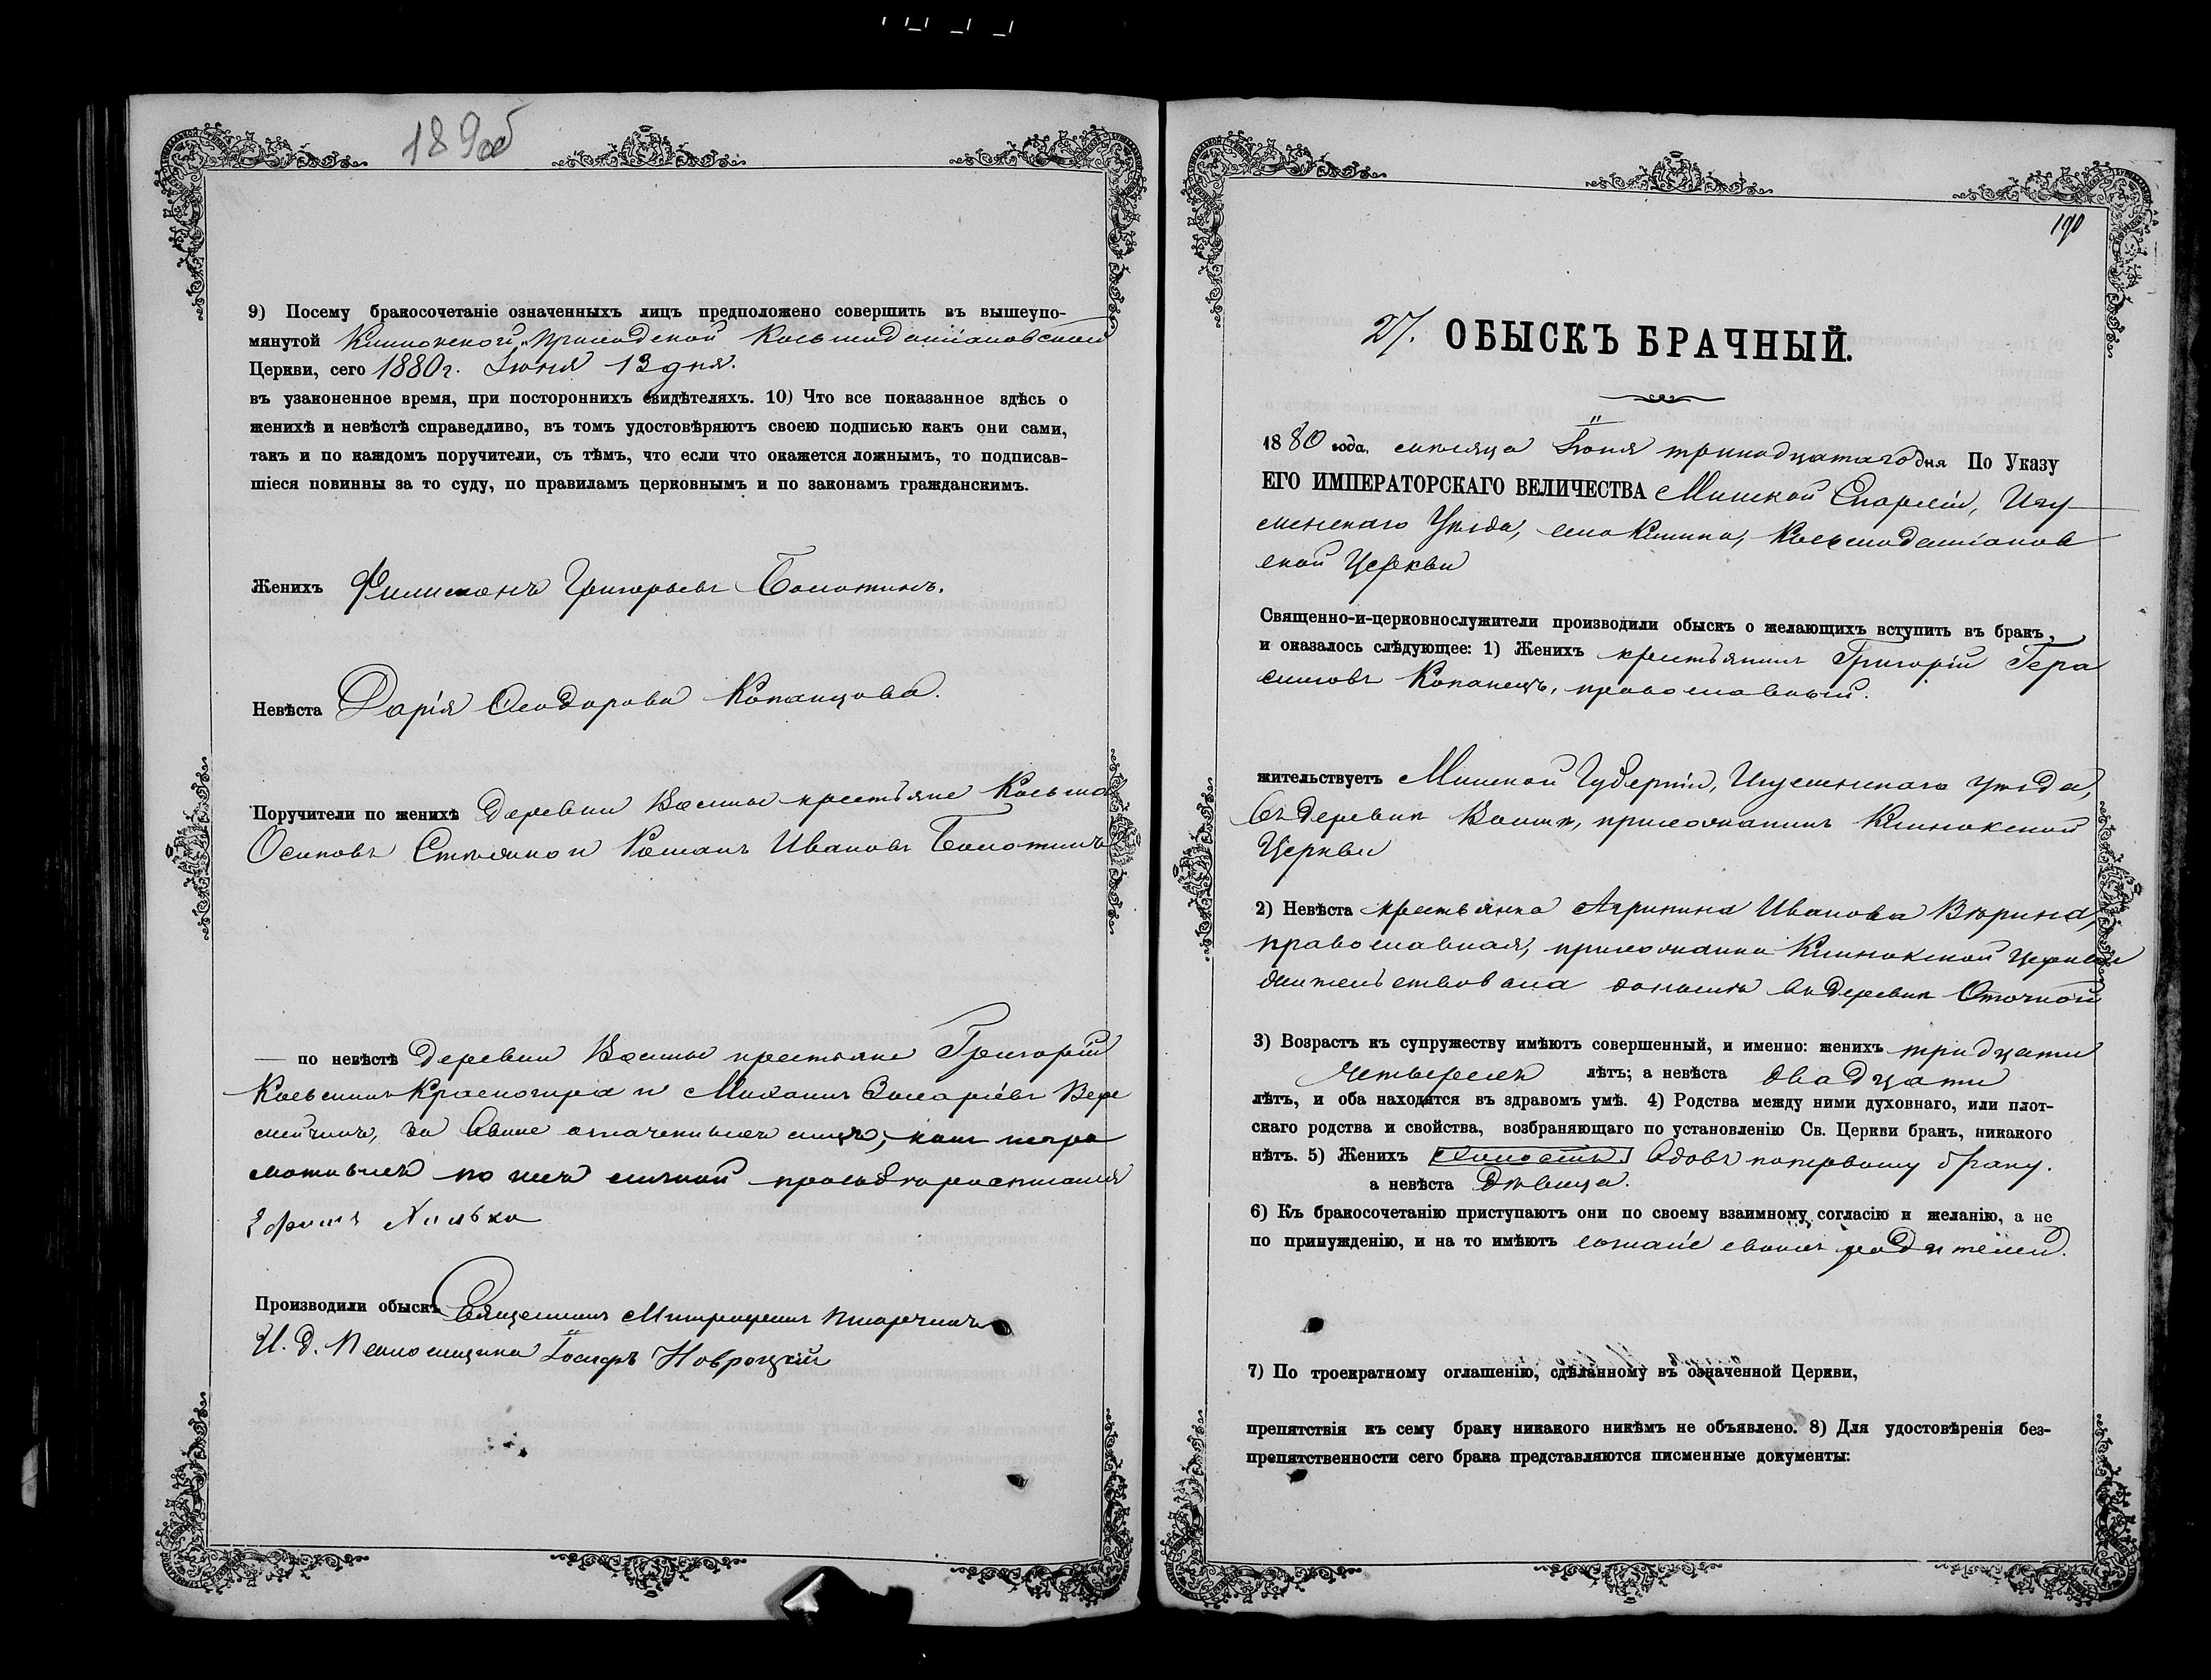 189 об
9) Посему бракосочетаніе означенныхъ лицъ предположено совершить въ вышеупо-
мянутой Клинокской приходской Косьмодаміановской
Церкви, сего 1880 г. Іюня 13 дня.
въ узаконенное время, при постороннихъ свидѣтеляхъ. 10) Что все показанное здѣсь о
женихѣ и невѣстѣ справедливо, въ томъ удостовѣряютъ своею подписью какъ они сами,
такъ и по каждомъ поручители, съ тѣмъ, что если что окажется ложнымъ, то подписав-
шіеся повинны за то суду, по правиламъ церковнымъ и по законамъ гражданскимъ.
Женихъ Филимонъ Григорьевъ Болотинъ.
Невѣста Дарія Ѳеодорова Копанцова.
Поручители по женихѣ деревни крестьяне Косьма
Осиповъ и Романъ Ивановъ Болотинъ
— по невѣстѣ деревни крестьяне Григорій
Косьминъ и Михаилъ
за выше означенныхъ лицъ, какъ неграмотныхъ по ихъ личной просьбѣ росписался
Хилько
Производили обыскъ Священникъ
И. д. Псаломщика Іосифъ Новроцкій
190
27. ОБЫСКЪ БРАЧНЫЙ.
1880 года, мѣсяца Іюня тринадцатаго дня По Указу
ЕГО ИМПЕРАТОРСКАГО ВЕЛИЧЕСТВА Минской Епархіи, Игу-
менскаго Уѣзда, села Клинка, Косьмодаміанов
ской Церкви
Священно-и-церковнослужители производили обыскъ о желающихъ вступить въ бракъ,
и оказалось слѣдующее: 1) Женихъ крестьянинъ Григорій Гера
симовъ Копанецъ, православный.
жительствуетъ Минской Губерніи, Игуменскаго уѣзда,
въ деревни прихожанинъ Клинокской
Церкви
2) Невѣста крестьянка Агрипина Иванова Вюрина,
православная, прихожанка Клинокской церкви
жительствовала донынѣ въ деревни Оточной
3) Возрастъ къ супружеству имѣютъ совершенный, и именно: женихъ тридцати
четырехъ лѣтъ; а невѣста двадцати
лѣтъ, и оба находятся въ здравомъ умѣ. 4) Родства между ними духовнаго, или плот-
скаго родства и свойства, возбраняющаго по установленію Св. Церкви бракъ, никакого
нѣтъ. 5) Женихъ холостъ. вдовъ по первому браку.
а невѣста дѣвица.
6) Къ бракосочетанію приступаютъ они по своему взаимному согласію и желанію, а не
по принужденію, и на то имѣютъ согласіе своихъ родителей.
7) По троекратному оглашенію, сдѣланному въ означенной Церкви,
препятствія къ сему браку никакого никѣмъ не объявлено. 8) Для удостовѣренія без-
препятственности сего брака представляются писменные документы: